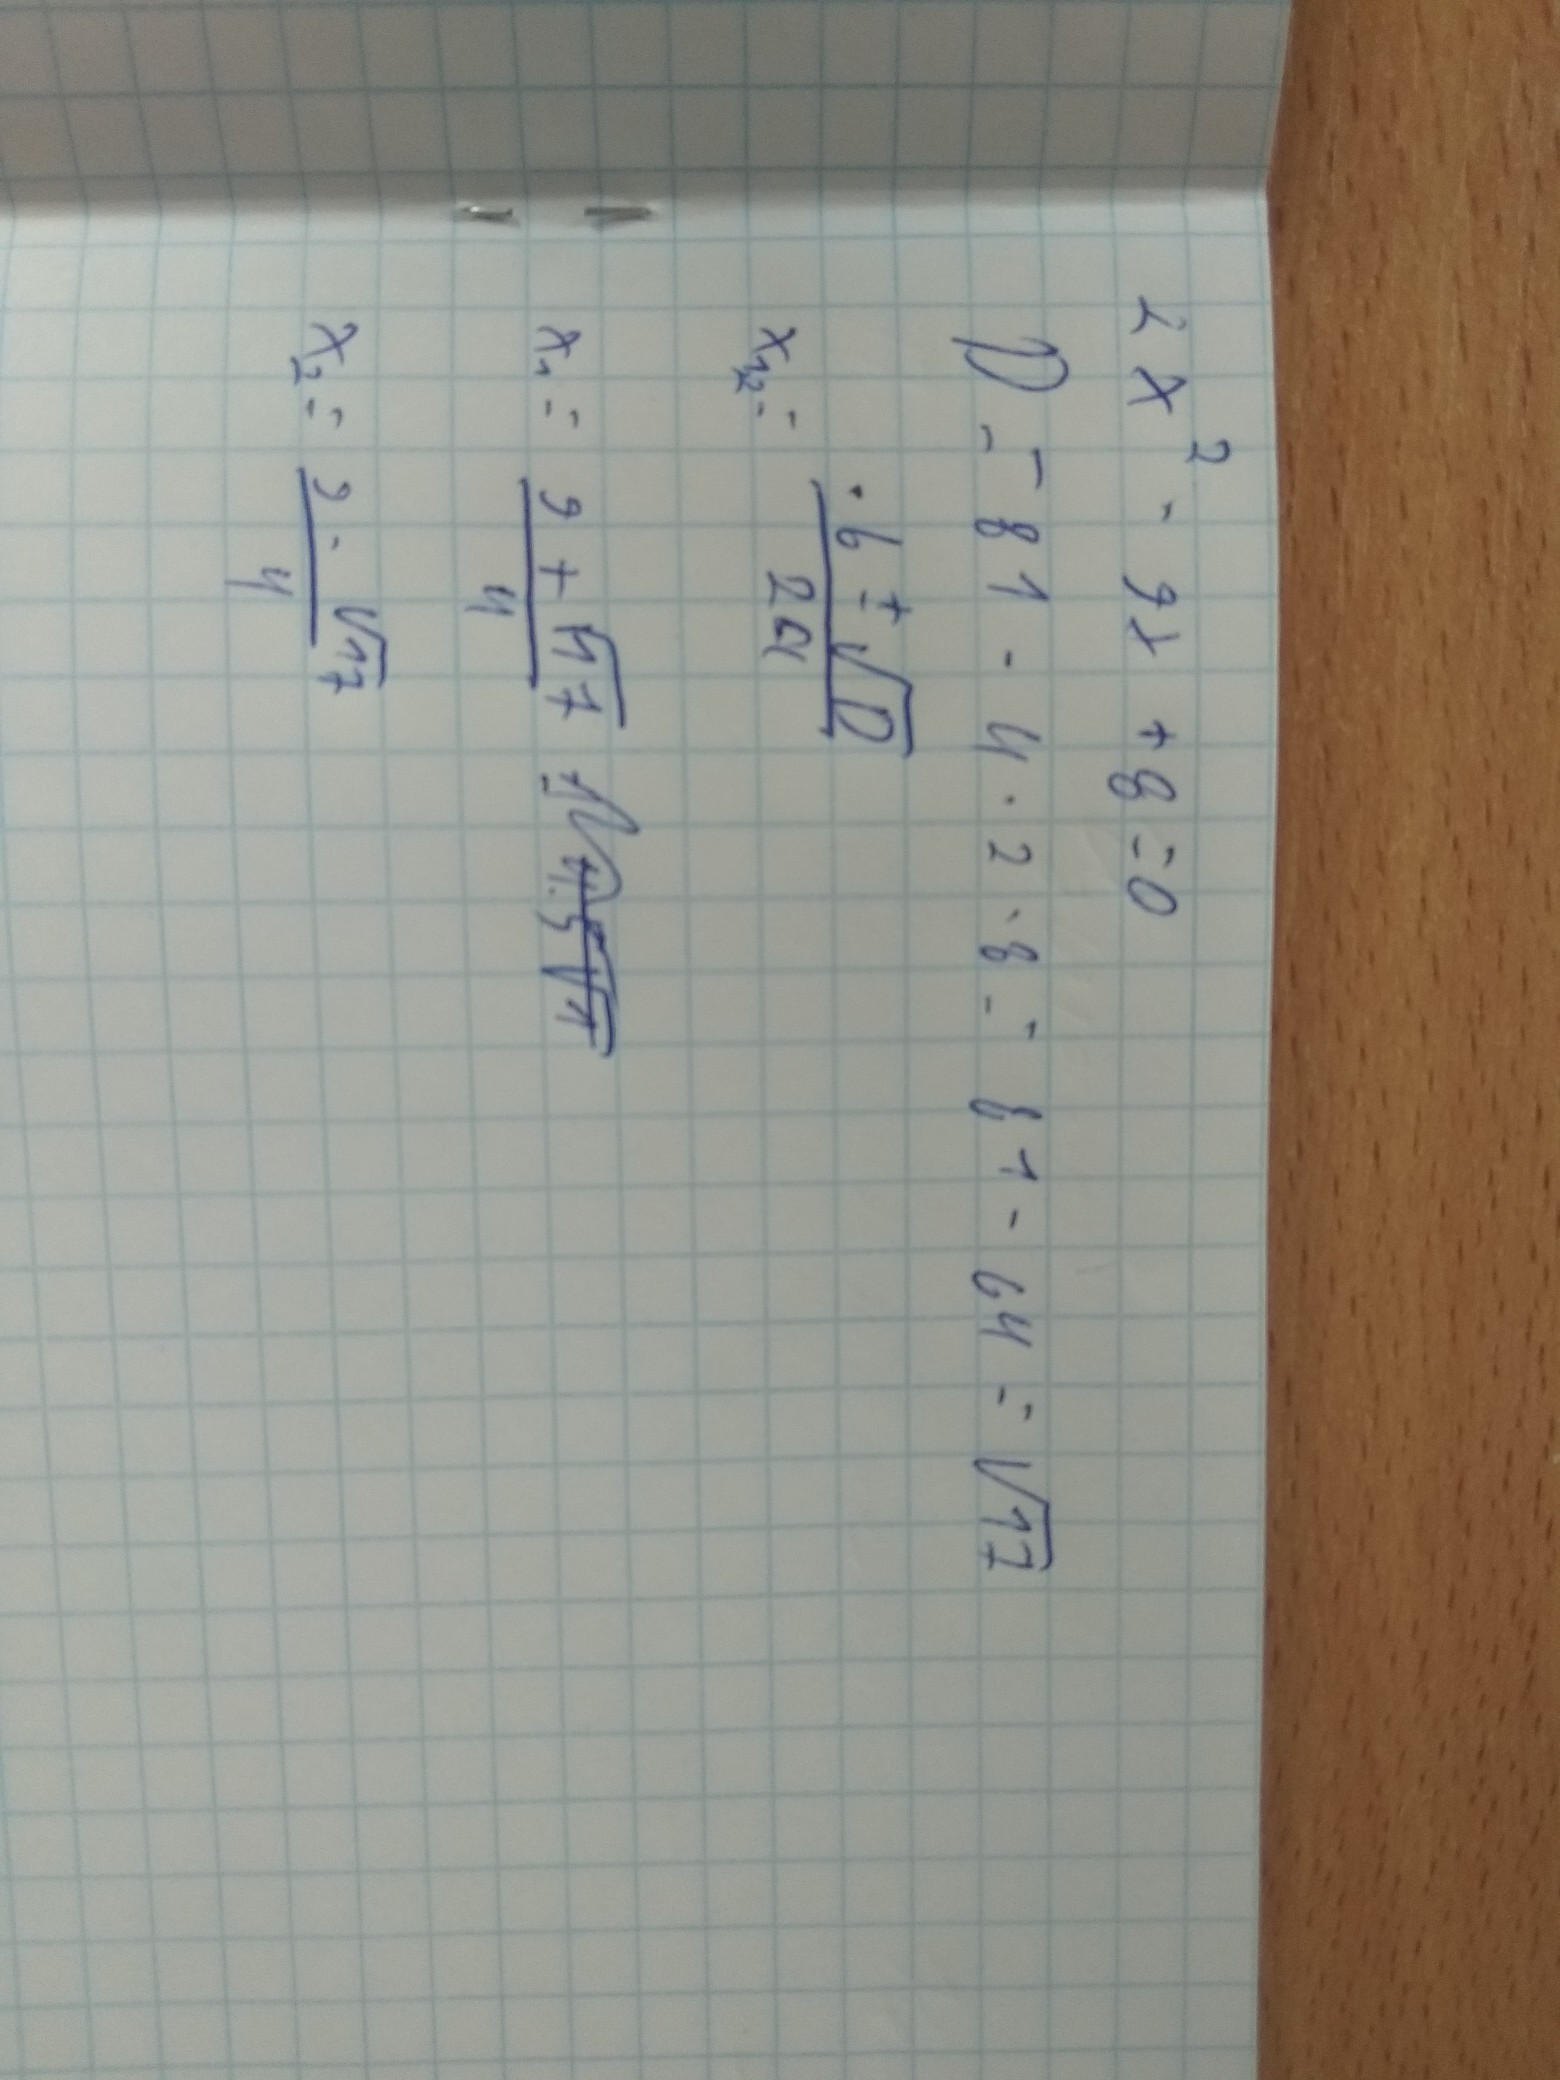 2x² - 9x + 8 = 0
D = 81 - 4 · 2 · 8 = 81 - 64 = √17
x₁,₂ = (-b ± √D) / 2a
x₁ = (9 + √17) / 4
x₂ = (9 - √17) / 4